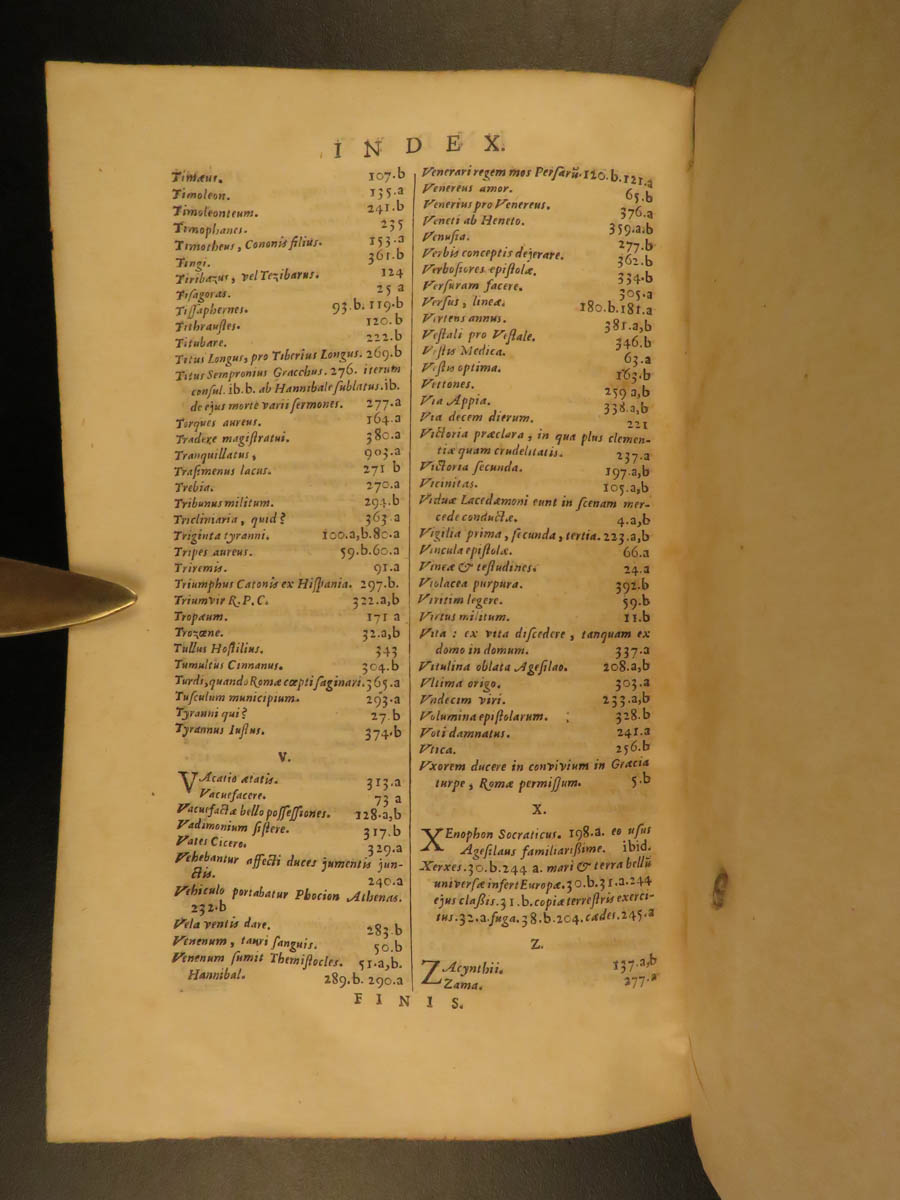 INDEX.
Timæus. 107.b
Timoleon. 135.a
Timoleonteum. 241.b
Timophanes. 235
Timotheus, Cononis filius. 153.a
Tingi. 361.b
Tiribazus, vel Tezibarus. 124
Tisagoras. 25 a
Tiſſaphernes. 93.b. 119.b
Tithrauſtes. 120.b
Titubare. 222.b
Titus Longus, pro Tiberius Longus. 269.b
Titus Sempronius Gracchus. 276. iterum
conſul. ib.b. ab Hannibale ſublatus. ib.
de ejus morte varii ſermones. 277.a
Torques aureus. 164.a
Tradere magiſtratui. 380.a
Tranquillatus, 903.a
Traſimenus lacus. 271 b
Trebia. 270.a
Tribunus militum. 294.b
Tricliniaria, quid? 363.a
Triginta tyranni. 100.a,b.80.a
Tripes aureus. 59.b.60.a
Triremis. 91.a
Triumphus Catonis ex Hiſpania. 297.b.
Triumvir R.P.C. 322.a,b
Tropæum. 171 a
Trozœne. 32.a,b
Tullus Hoſtilius. 343
Tumultus Cinnanus. 304.b
Turdi, quando Romæ cœpti ſaginari. 365.a
Tuſculum municipium. 293.a
Tyranni qui? 27.b
Tyrannus Iuſtus. 374.b
V.
VAcatio ætatis. 313.a
Vacuefacere. 73 a
Vacuefactæ bello poſſeſſiones. 128.a,b
Vadimonium ſiſtere. 317.b
Vates Cicero. 329.a
Vehebantur affecti duces jumentis jun-
ctis. 240.a
Vehiculo portabatur Phocion Athenas.
232.b
Vela ventis dare. 283.b
Venenum, tauri ſanguis. 50.b
Venenum ſumit Themiſtocles. 51.a,b.
Hannibal. 289.b. 290.a
Venerari regem mos Perſarũ. 120.b.121.a
Venereus amor. 65.b
Venerius pro Venereus. 376.a
Veneti ab Heneto. 359.a.b
Venuſia. 277.b
Verbis conceptis dejerare. 362.b
Verboſiores epiſtolæ. 334.b
Verſuram facere. 305.a
Verſus, lineæ. 180.b.181.a
Vertens annus. 381.a,b
Veſtali pro Veſtale. 346.b
Veſtis Medica. 63.a
Veſtis optima. 163.b
Vettones. 259 a,b
Via Appia. 338.a,b
Via decem dierum. 221
Victoria præclara, in qua plus clemen-
tiæ quam crudelitatis. 237.a
Victoria ſecunda. 197.a,b
Vicinitas. 105.a,b
Viduæ Lacedæmoni eunt in ſcenam mer-
cede conductæ. 4.a,b
Vigilia prima, ſecunda, tertia. 223.a,b
Vincula epiſtolæ. 66.a
Vineæ & teſtudines. 24.a
Violacea purpura. 392.b
Viritim legere. 59.b
Virtus militum. 11.b
Vita: ex vita diſcedere, tanquam ex
domo in domum. 337.a
Vitulina oblata Ageſilao. 208.a,b
Vltima origo. 303.a
Vndecim viri. 233.a,b
Volumina epiſtolarum. 328.b
Voti damnatus. 241.a
Vtica. 256.b
Vxorem ducere in convivium in Græcia
turpe, Romæ permiſſum. 5.b
X.
XEnophon Socraticus. 198.a. eo uſus
Ageſilaus familiariſſime. ibid.
Xerxes. 30.b.244 a. mari & terra bellũ
univerſæ infert Europæ. 30.b.31.a.244
ejus claſſis. 31.b. copiæ terreſtris exerci-
tus. 32.a. fuga. 38.b.204. cædes. 245.a
Z.
ZAcynthii. 137.a,b
Zama. 277.a
FINIS.